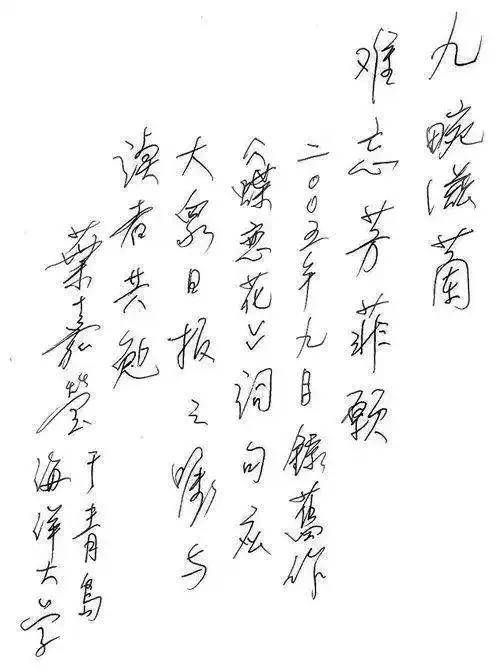 九畹滋蘭
难忘芳菲願
二〇〇五年九月錄舊作
《蝶恋花》词句应
大众日报之嘱与
读者共勉
葉嘉莹
于青島
海洋大学